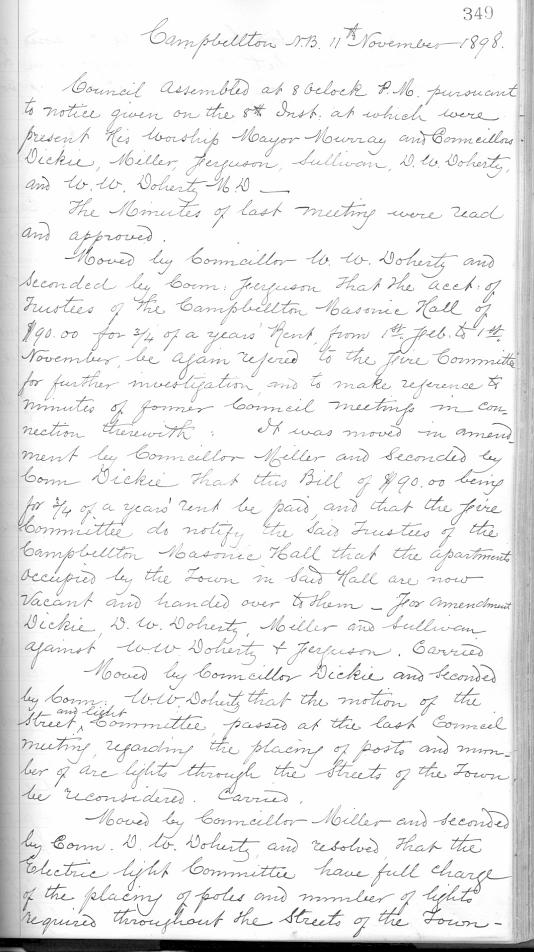 349
Campbellton N.B. 11th November 1898.
Council Assembled at 8 Oclock P.M. pursuant
to notice given on the 8th Inst. at which were
present His Worship Mayor Murray and Councillors
Dickie, Miller, Ferguson, Sullivan, D.W. Doherty,
and W.W. Doherty M.D —
The Minutes of last meeting were read
and approved.
Moved by Councillor W. W. Doherty and
Seconded by Coun: Ferguson that the acct: of
Trustees of the Campbellton Masonic Hall of
$90.00 for 3/4 of a years' Rent, from 1st Feb. to 1st
November, be again refered to the Fire Committe
for further investigation and to make reference to
minutes of former Council meetings in con-
nection therewith : It was moved in amend-
ment by Councillor Miller and Seconded by
Coun Dickie that this Bill of $90.00 being
for 3/4 of a years' rent be paid and that the Fire
Committee do notify the Said Trustees of the
Campbellton Masonic Hall that the apartments
occupied by the Town in Said Hall are now
Vacant and handed over to them — For amendment
Dickie, D.W. Doherty, Miller and Sullivan,
against W W Doherty & Ferguson. Carried
Moved by Councillor Dickie and seconded
by Coun. W.W. Doherty that the motion of the
Street ^ and light Committee passed at the last Council
meeting, regarding the placing of posts and num-
ber of arc lights through the Streets of the Town
be reconsidered. Carried.
Moved by Councillor Miller and seconded
by Coun. D. W. Doherty, and resolved that the
Electric light Committee have full charge
of the placing of poles and number of lights
required throughout the Streets of the Town —